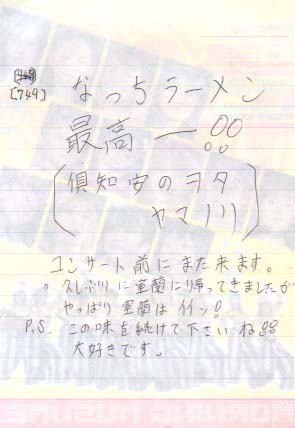 [749] なっちラーメン
最高ー!!
(倶知安のヲタ
ヤマノリ)
コンサート前にまた来ます。
。久しぶりに室蘭に帰ってきましたが
やっぱり室蘭はイイッ!
P.S. この味を続けて下さいね!!
大好きです。
MORNING MUSUME